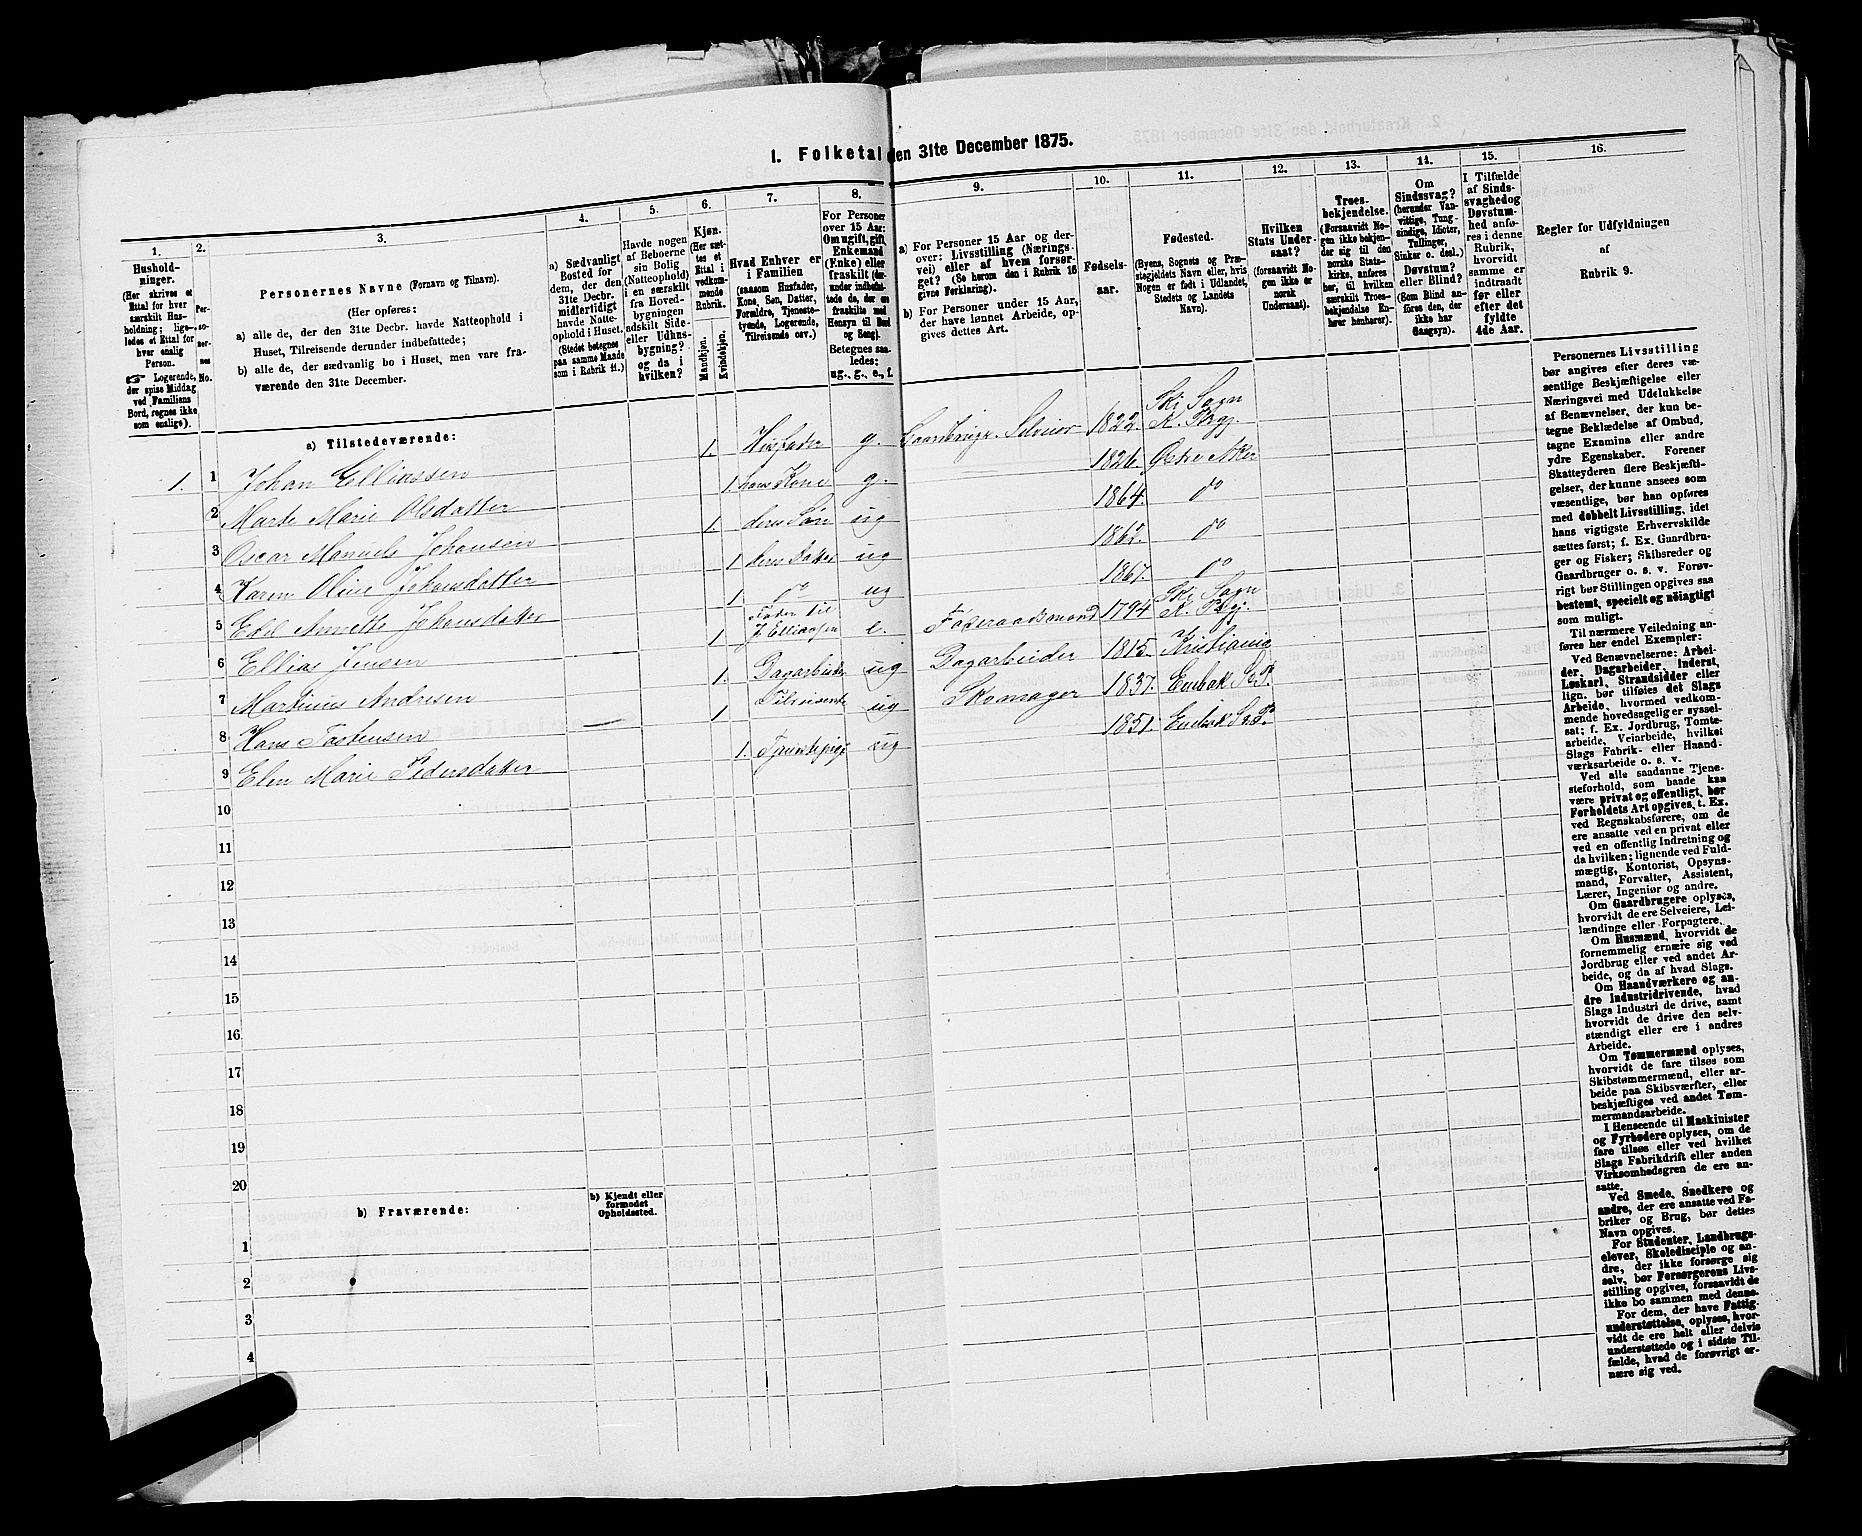 I. Folketal den 31te December 1875.
1.
2.
3.
4.
5.
6.
7.
8.
9.
10.
11.
12.
13.
14.
15.
16.
Hushold-
ninger.
(Her skrives et
Ettal for hver
særskilt Hus-
holdning; lige-
ledes et Ettal for
hver enslig
Person.
☞ Logerende,
der spise Middag
ved Familiens
Bord, regnes ikke
som enslige).
Per-
so-
ner-
nes
No.
Personernes Navne (Fornavn og Tilnavn).
(Her opføres:
a) alle de, der den 31te Decbr. havde Natteophold i
Huset, Tilreisende derunder indbefattede;
b) alle de, der sædvanlig bo i Huset, men vare fra-
værende den 31te December.
a) Sædvanligt
Bosted for
dem, der den
31te Decbr.
midlertidigt
havde Natte-
ophold i Huset.
(Stedet betegnes
paa samme Maade
som i Rubrik 11.)
Havde nogen
af Beboerne
sin Bolig
(Natteophold)
i en særskilt
fra Hoved-
bygningen
adskilt Side-
eller Udhus-
bygning?
og da i
hvilken?
Kjøn.
(Her sæt-
tes et
Ettal i
vedkom-
mende
Rubrik.
Mandkjøn.
Kvindekjøn.
Hvad Enhver er
i Familien
(saasom Husfader,
Kone, Søn, Datter,
Forældre, Tjeneste-
tyende, Logerende,
Tilreisende osv.)
For Personer
over 15 Aar:
Om ugift, gift,
Enkemand
(Enke) eller
fraskilt (der-
under indbefat-
tede de, der ere
fraskilte med
Hensyn til Bord
og Seng).
Betegnes saa-
ledes:
ug., g., e., f.
a) For Personer 15 Aar og der-
over: Livsstilling (Nærings-
vei) eller af hvem forsør-
get? (Se herom den i Rubrik 16
givne Forklaring).
b) For Personer under 15 Aar,
der have lønnet Arbeide, op-
gives dettes Art.
Fødsels-
aar.
Fødested.
(Byens, Sognets og Præ-
stegjeldets Navn eller, hvis
Nogen er født i Udlandet,
Stedets og Landets
Navn).
Hvilken
Stats Under-
saat?
(forsaavidt No-
gen ikke er
norsk
Undersaat).
Troes-
bekjendelse.
(Forsaavidt No-
gen ikke bekjen-
der sig til den
norske Stats-
kirke, anføres
her, til hvilken
særskilt Troes-
bekjendelse En-
hver henhører).
Om
Sindssvag?
(herunder Van-
vittige, Tung-
sindige, Idioter,
Tullinger,
Sinker o. desl.)
Døvstum?
eller Blind?
(Som Blind an-
føres den, der
ikke har
Gangsyn).
I Tilfælde
af Sinds-
svaghedog
Døvstum-
hed anfø-
res i denne
Rubrik,
hvorvidt
samme er
indtraadt
før eller
efter det
fyldte
4de Aar.
Regler for Udfyldningen
af
Rubrik 9.
a) Tilstedeværende:
1. 1 Johan Elliassen 1. Husfader g. Gaardbruger Selveier 1822. Ski Sogn K. Prgj.
2 Marte Marie Olsdatter 1. hans Kone g. 1826. Østre Aker
3 Oscar Manuels Johansen 1. deres Søn ug 1864. do
4 Karen Oline Johansdatter 1 deres Datter ug 1862. do
5 Edel Annette Johansdatter 1 do ug 1867. do
6 Ellias Jensen 1 Fader til J. Elliassen e. Føderaadsmand 1794. Ski Sogn K. Prgj.
7 Martinius Andresen 1. Dagarbeider ug Dagarbeider 1815. Kristiania
8 Hans Tostensen — 1 Tilreisende ug Skomager 1837. Enebak S&P.
9 Elen Marie Pedersdatter 1. Tjenestepige ug 1851. Enebak S&P.
10
11
12
13
14
15
16
17
18
19
20
b) Fraværende:
b) Kjendt eller
formodet
Opholdssted.
1
2
3
4
Personernes Livsstilling
bør angives efter deres væ-
sentlige Beskjæftigelse eller
Næringsvei med Udelukkelse
af Benævnelser, der kun be-
tegne Beklædelse af Ombud,
tagne Examina eller andre
ydre Egenskaber. Forener
Skatteyderen flere Beskjæfti-
gelser, der kunne ansees som
væsentlige, bør han opføres
med dobbelt Livsstilling, idet
hans vigtigste Erhvervskilde
sættes først; f. Ex. Gaardbru-
ger og Fisker; Skibsreder og
Gaardbruger o. s. v. Forøv-
rigt bør Stillingen opgives saa
bestemt, specielt og nøiagtigt
som muligt.
Til nærmere Veiledning an-
føres her endel Exempler:
Ved Benævnelserne: Arbei-
der, Dagarbeider, Inderst,
Løskarl, Strandsidder eller
lign. bør tilføies det Slags
Arbeide, hvormed vedkom-
mende hovedsagelig er syssel-
sat; f. Ex. Jordbrug, Tomte-
arbeide, Veiarbeide, hvilket
Slags Fabrik- eller Haand-
værksarbeide o. s. v.
Ved alle saadanne Tjene-
steforhold, som baade kan
være privat og offentligt, bør
Forholdets Art opgives, t. Ex.
ved Regnskabsførere, om de
ere ansatte ved en privat eller
ved en offentlig Indretning og
da hvilken; lignende ved Fuld-
mægtig, Kontorist, Opsyns-
mand, Forvalter, Assistent,
Lærer, Ingeniør og andre.
Om Gaardbrugere oplyses,
hvorvidt de ere Selveiere, Lei-
lændinge eller Forpagtere.
Om Husmænd, hvorvidt de
fornemmelig ernære sig ved
Jordbrug eller ved andet Ar-
beide, og da af hvad Slags.
Om Haandværkere og an-
dre Industridrivende, hvad
Slags Industri de drive, samt
hvorvidt de drive den selv-
stændigt eller ere i andres
Arbeide.
Om Tømmermænd oplyses,
hvorvidt de fare tilsøs som
Skibstømmermænd, eller ar-
beide paa Skibsværfter, eller
beskjæftiges ved andet Tøm-
mermandsarbeide.
I Henseende til Maskinister
og Fyrbødere oplyses, om de
fare tilsøs eller ved hvilket
Slags Fabrikdrift eller anden
Virksomhedsgren de ere an-
satte.
Ved Smede, Snedkere og
andre, der ere ansatte ved Fa-
briker og Brug, bør dettes
Navn opgives.
For Studenter, Landbrugs-
elever, Skoledisciple og an-
dre, der ikke forsørge sig
selv, bør Forsørgerens Livs-
stilling opgives, forsaavidt de
ikke bo sammen med denne.
For dem, der have Fattig-
understøttelse, oplyses, hvor-
vidt de ere helt eller delvis
understøttede og i sidste Til-
fælde, hvad de forøvrigt er-
nære sig ved.